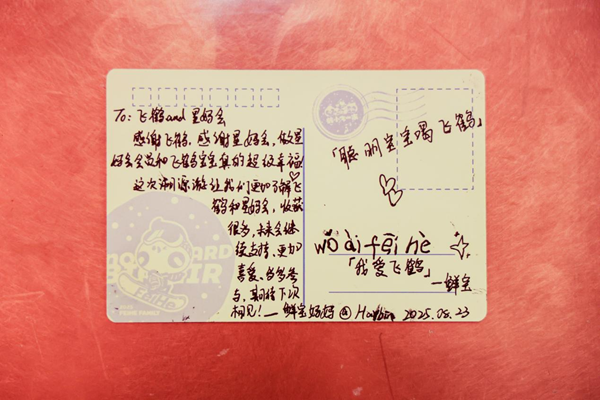 To: 飞鹤and 星妈会
感谢飞鹤,感谢星妈会,做星
妈会会员和飞鹤宝宝真的超级幸福
这次溯源游让我们更加了解飞
鹤和星妈会,收获
很多,未来会继
续支持、更加
喜爱、多多参
与,期待下次
相见!—鲜宝妈妈@Harbin 2025.08.23
「聪明宝宝喝飞鹤」
wǒ ài fēi hè
「我爱飞鹤」
—鲜宝